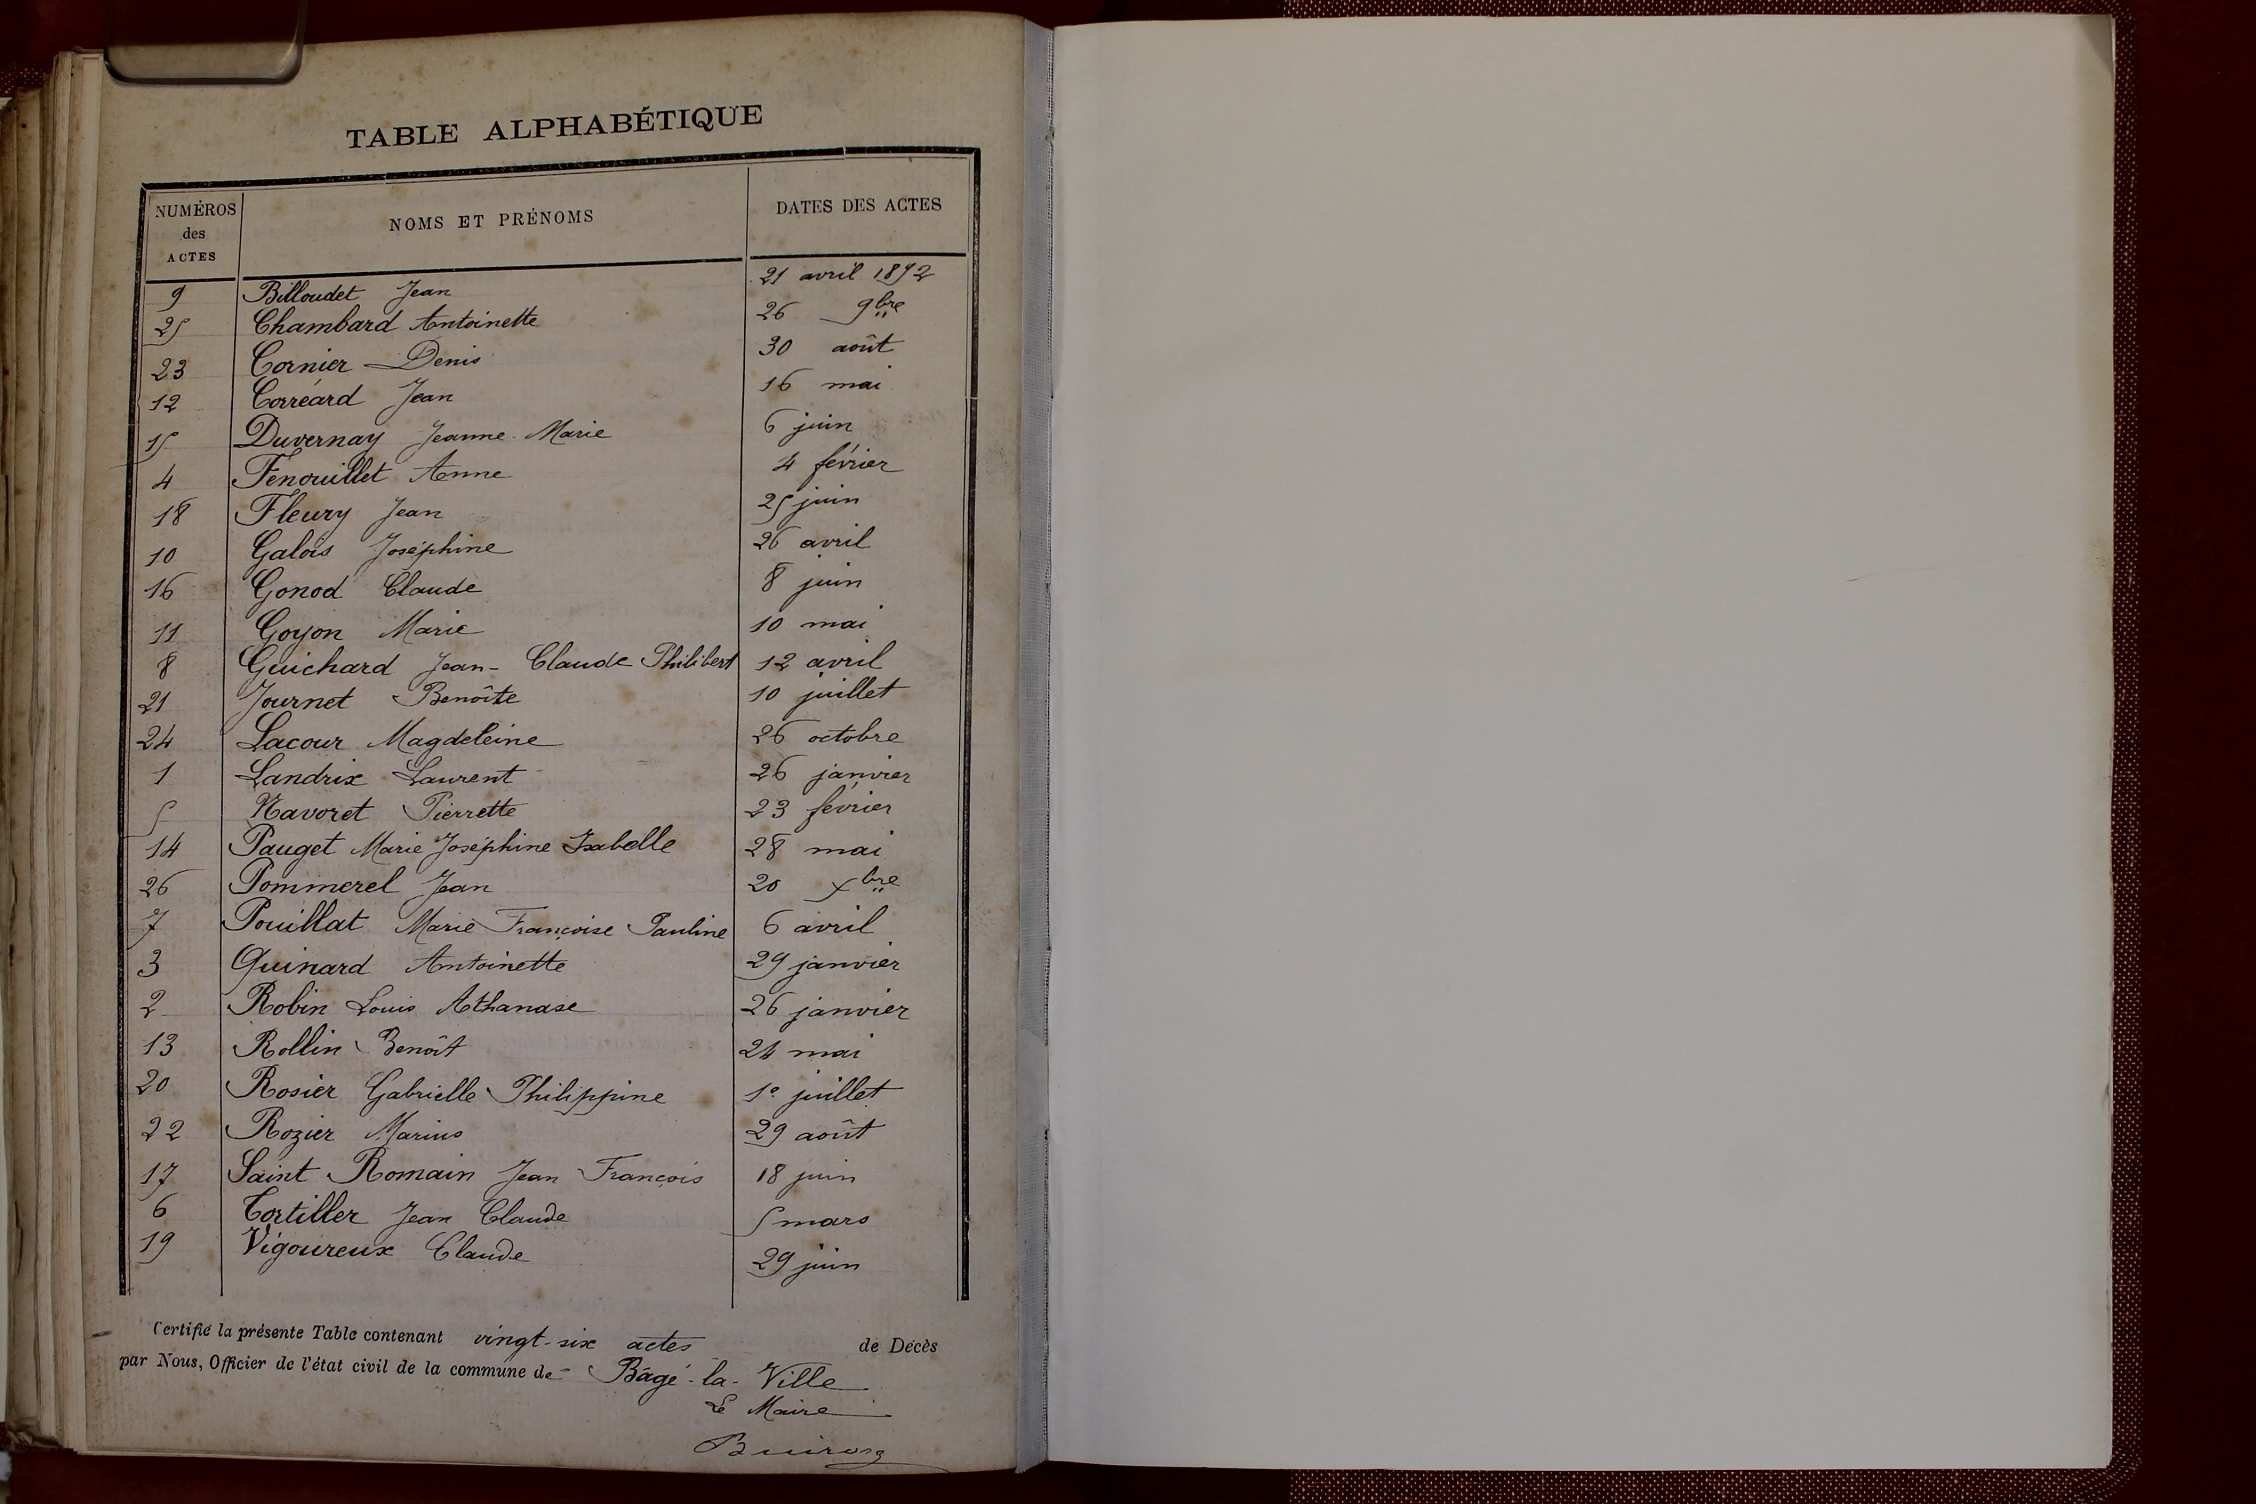 TABLE ALPHABÉTIQUE
NUMÉROS des ACTES NOMS ET PRÉNOMS DATES DES ACTES
9 Billoudet Jean 21 avril 1892
25 Chambard Antoinette 26 9bre
23 Cornier Denis 30 août
12 Corréard Jean 16 mai
15 Duvernay Jeanne Marie 6 juin
4 Fenouillet Anne 4 février
18 Fleury Jean 25 juin
10 Galois Joséphine 26 avril
16 Gonod Claude 8 juin
11 Goyon Marie 10 mai
8 Guichard Jean-Claude Philibert 12 avril
21 Journet Benoîte 10 juillet
24 Lacour Magdeleine 26 octobre
1 Landrix Laurent 26 janvier
5 Navoret Pierrette 23 février
14 Pauget Marie Joséphine Isabelle 28 mai
26 Pommerel Jean 20 xbre
7 Pouillat Marie Françoise Pauline 6 avril
3 Quinard Antoinette 29 janvier
2 Robin Louis Athanase 26 janvier
13 Rollin Benoît 24 mai
20 Rosier Gabrielle Philippine 1e juillet
22 Rozier Marius 29 août
17 Saint Romain Jean François 18 juin
6 Tortiller Jean Claude 5 mars
19 Vigoureux Claude 29 juin
Certifié la présente Table contenant vingt-six actes de Décès
par Nous, Officier de l'état civil de la commune de Bâgé-la-Ville
Le Maire